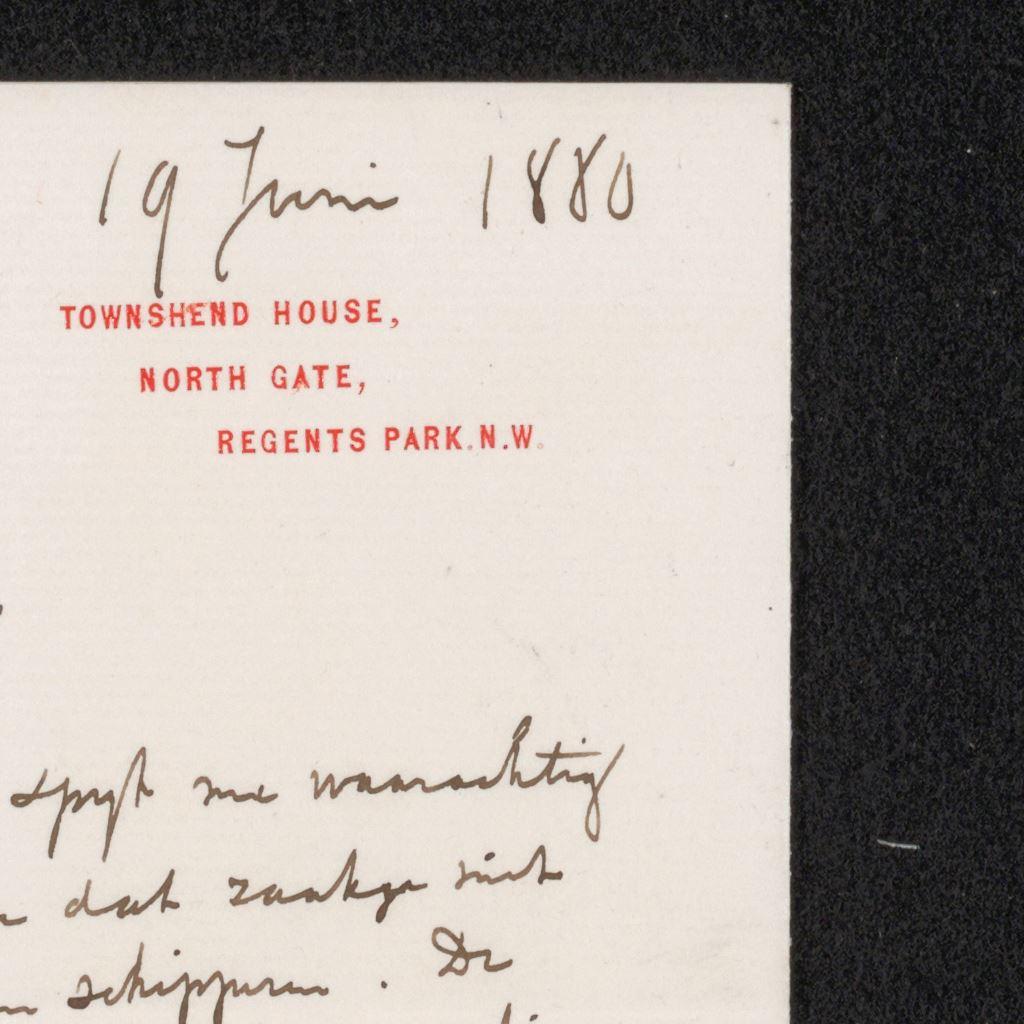 19 Juni 1880
TOWNSHEND HOUSE,
NORTH GATE,
REGENTS PARK.N.W.
spyt me waarachtig
dat zaakje niet
schipperen. De